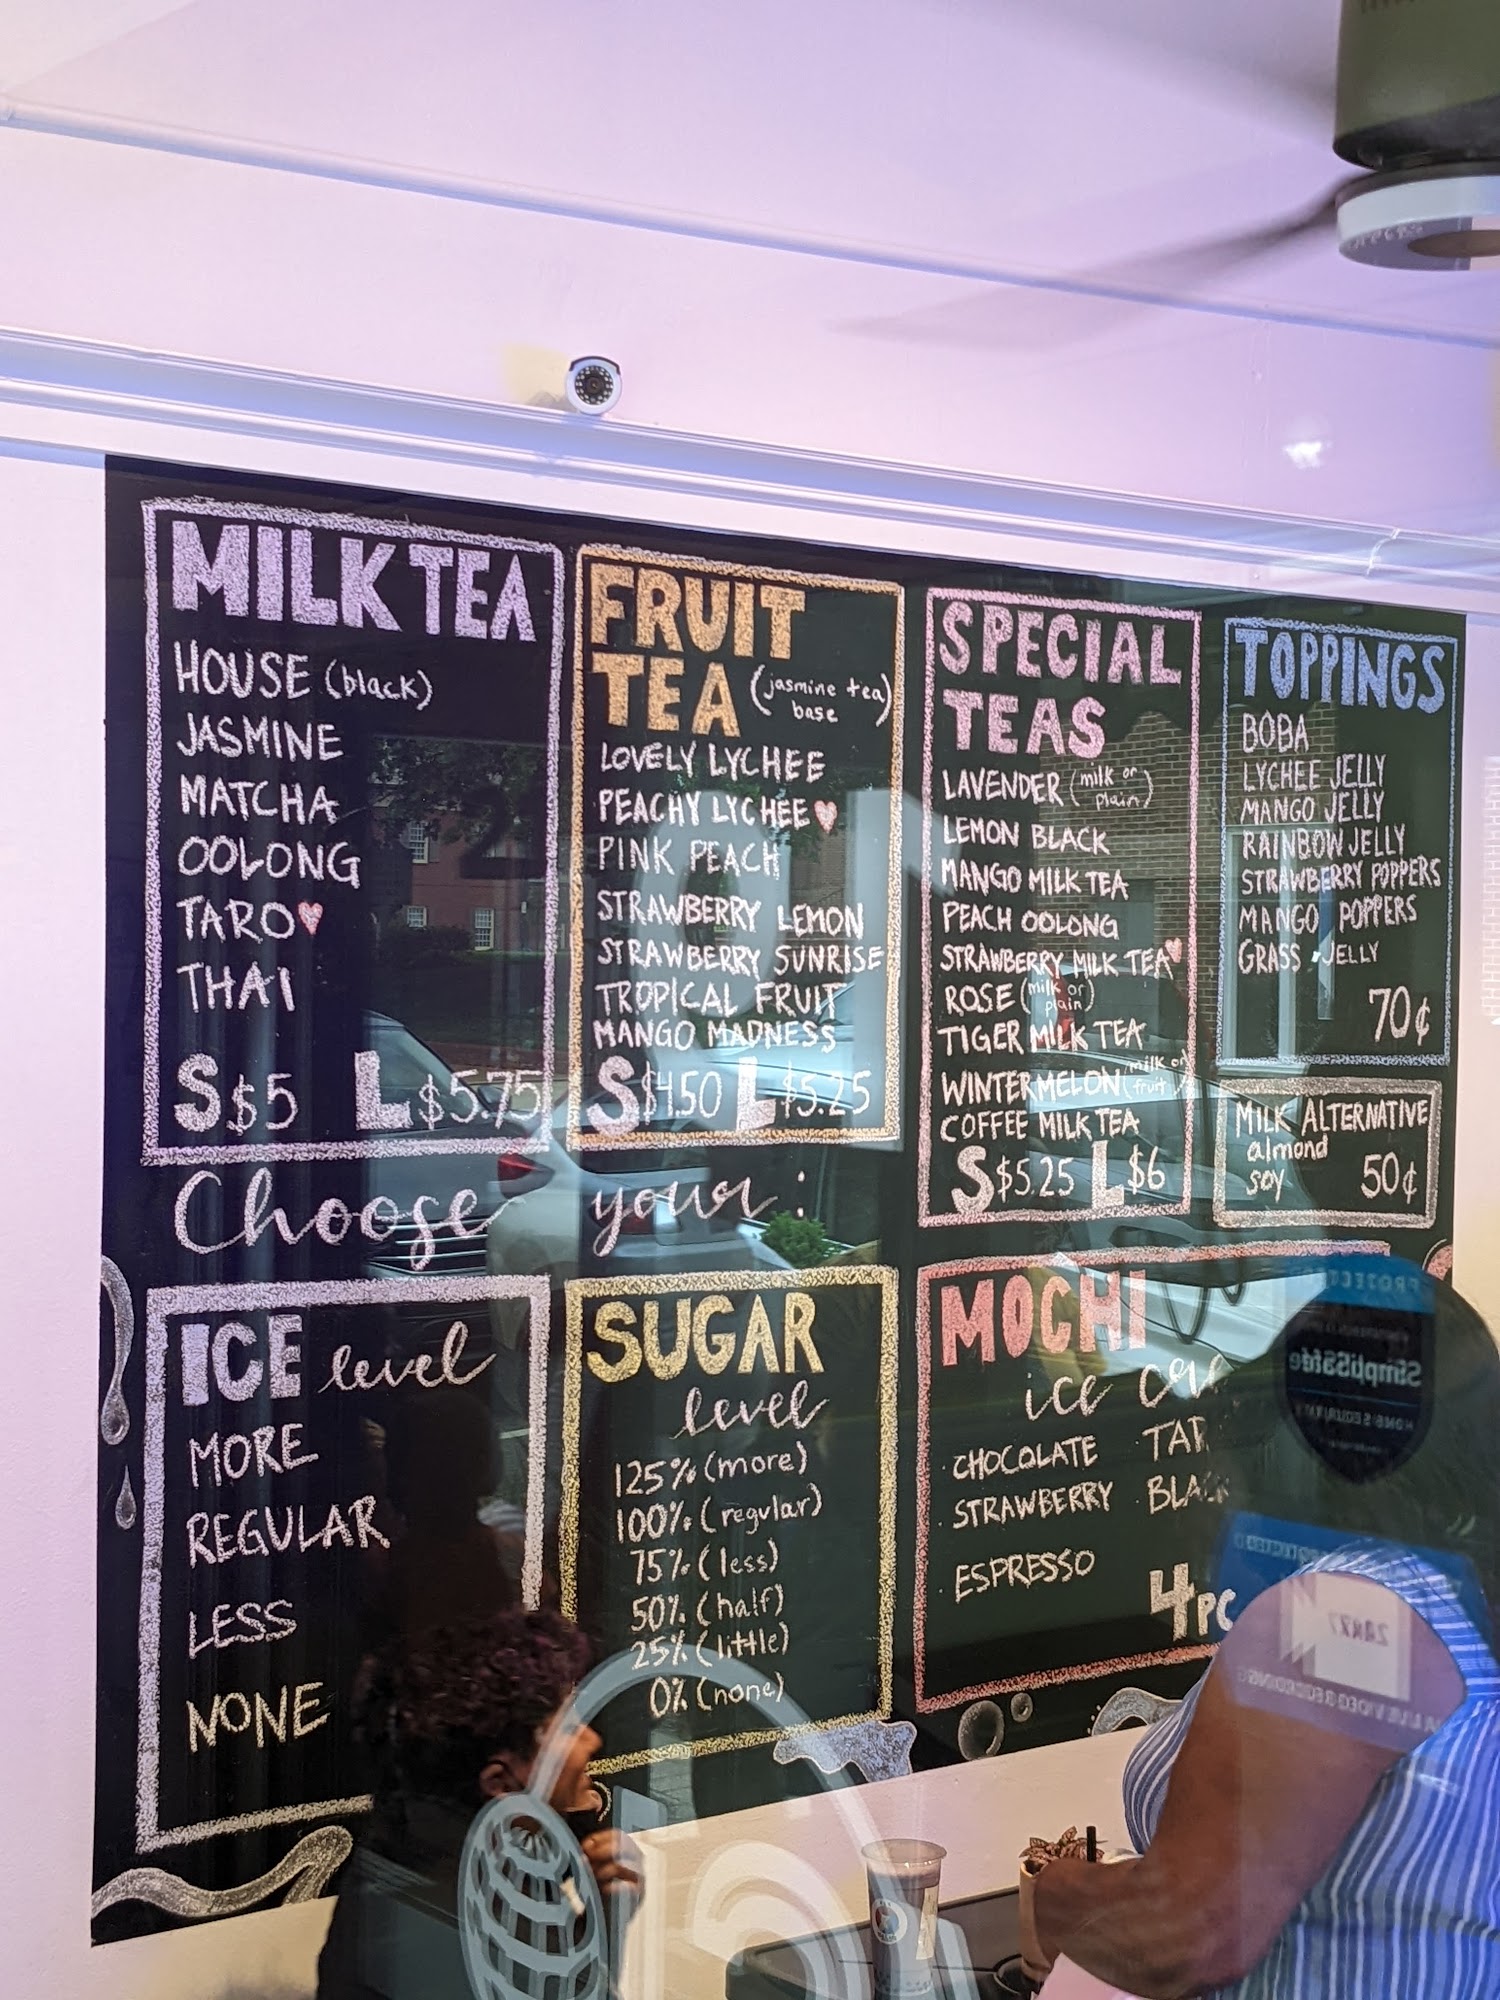 MILK TEA
HOUSE (black)
JASMINE
MATCHA
OOLONG
TARO
THAI
S $5 L $5.75
FRUIT
TEA (jasmine tea
base)
LOVELY LYCHEE
PEACHY LYCHEE
PINK PEACH
STRAWBERRY LEMON
STRAWBERRY SUNRISE
TROPICAL FRUIT
MANGO MADNESS
S $4.50 L $5.25
SPECIAL
TEAS
LAVENDER (milk or
plain)
LEMON BLACK
MANGO MILK TEA
PEACH OOLONG
STRAWBERRY MILK TEA
ROSE (milk or
plain)
TIGER MILK TEA
WINTERMELON (milk or
fruit)
COFFEE MILK TEA
S $5.25 L $6
TOPPINGS
BOBA
LYCHEE JELLY
MANGO JELLY
RAINBOW JELLY
STRAWBERRY POPPERS
MANGO POPPERS
GRASS JELLY
70¢
MILK ALTERNATIVE
almond
soy 50¢
Choose your:
ICE level
MORE
REGULAR
LESS
NONE
SUGAR
level
125% (more)
100% (regular)
75% (less)
50% (half)
25% (little)
0% (none)
MOCHI
ice
· CHOCOLATE
· STRAWBERRY
· ESPRESSO
4PC
PROTECTED
SimpliSafe
HOME SECURITY
24x7